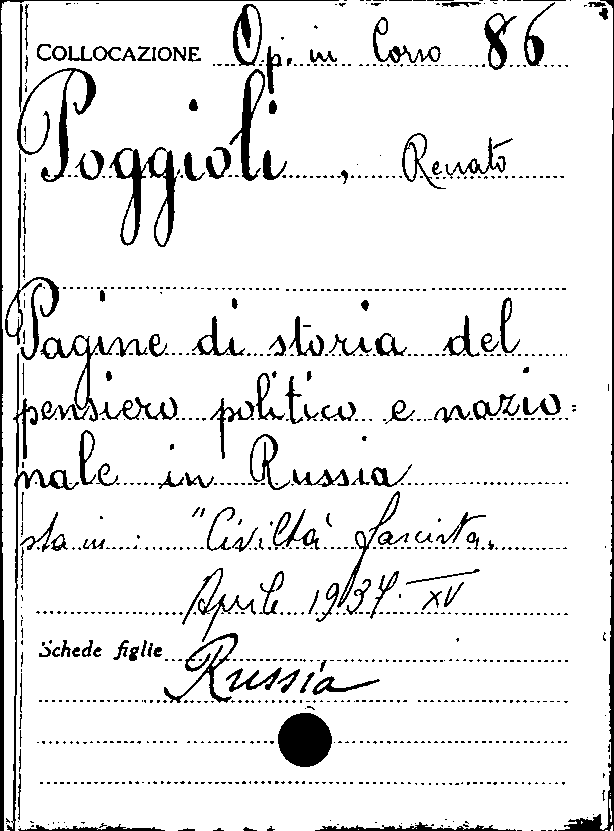 COLLOCAZIONE Op. in Corso 86
Poggioli, Renato
Pagine di storia del
pensiero politico e nazio=
nale in Russia
sta in: "Civiltà fascista.
Aprile 1937. XV
Schede figlie
Russia